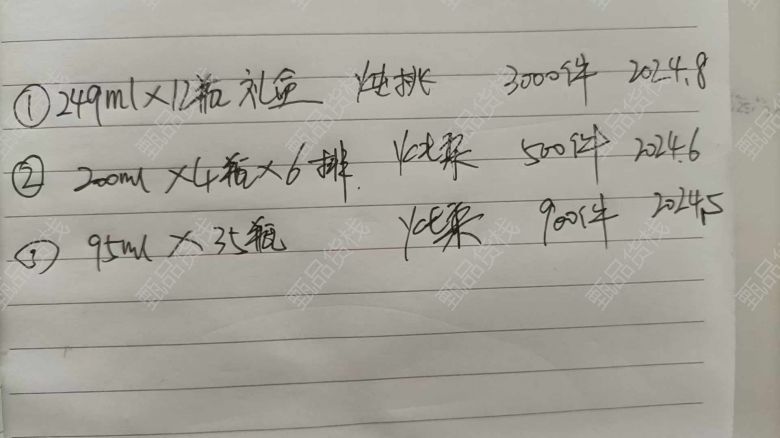 ① 249ml×12瓶 礼盒 3000件 2024.8
② 200ml ×4瓶×6排 500件 2024.6
③ 95ml ×35瓶 900件 2024.5
甄品货栈